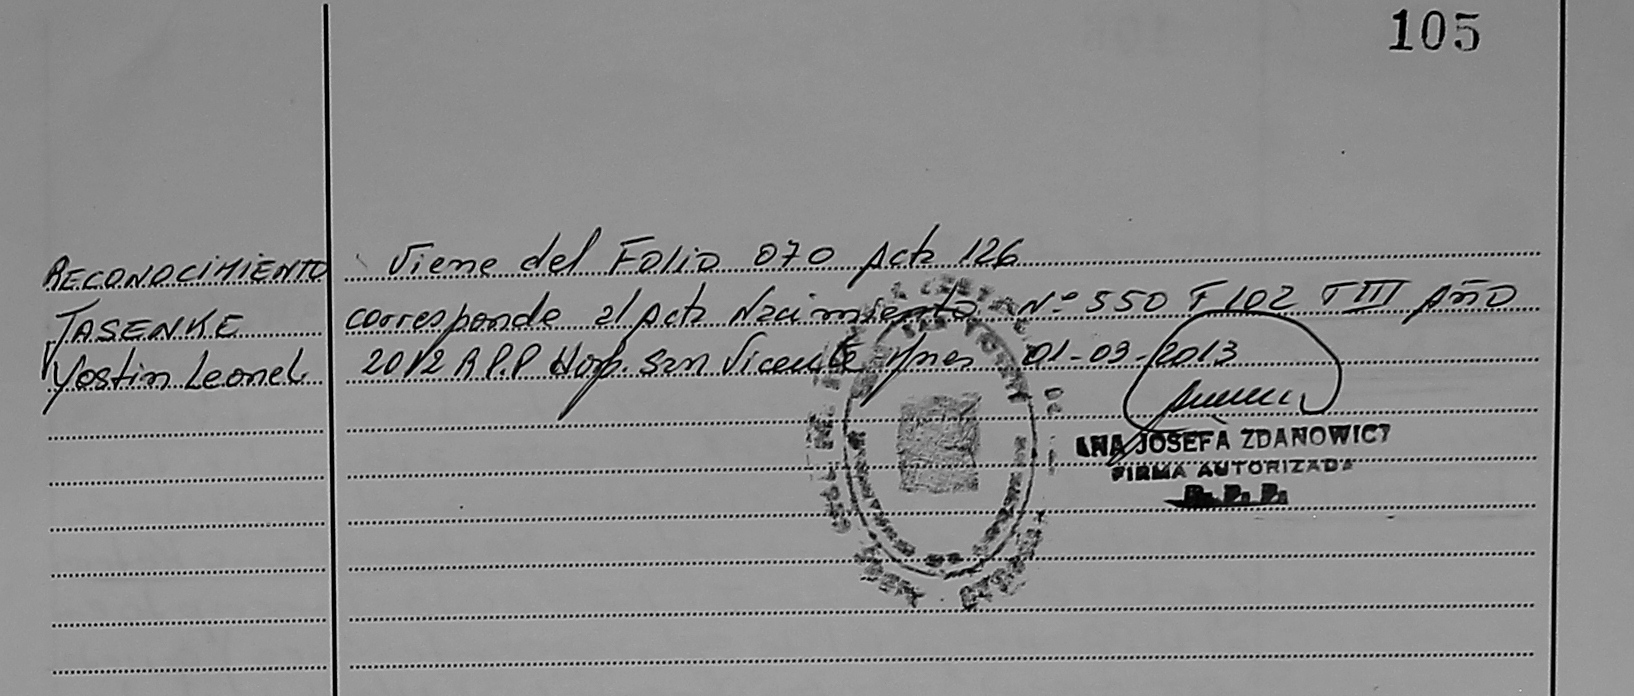 105
RECONOCIMIENTO
JASENKE
Yostin Leonel.
Viene del Folio 070 Acta 126
corresponde al Acta Nacimiento Nº 550 F 102 T III Año
2012 R.P.P Hosp. San Vicente Mnes 01-03-2013
ANA JOSEFA ZDANOWICZ
FIRMA AUTORIZADA
R. P. P.